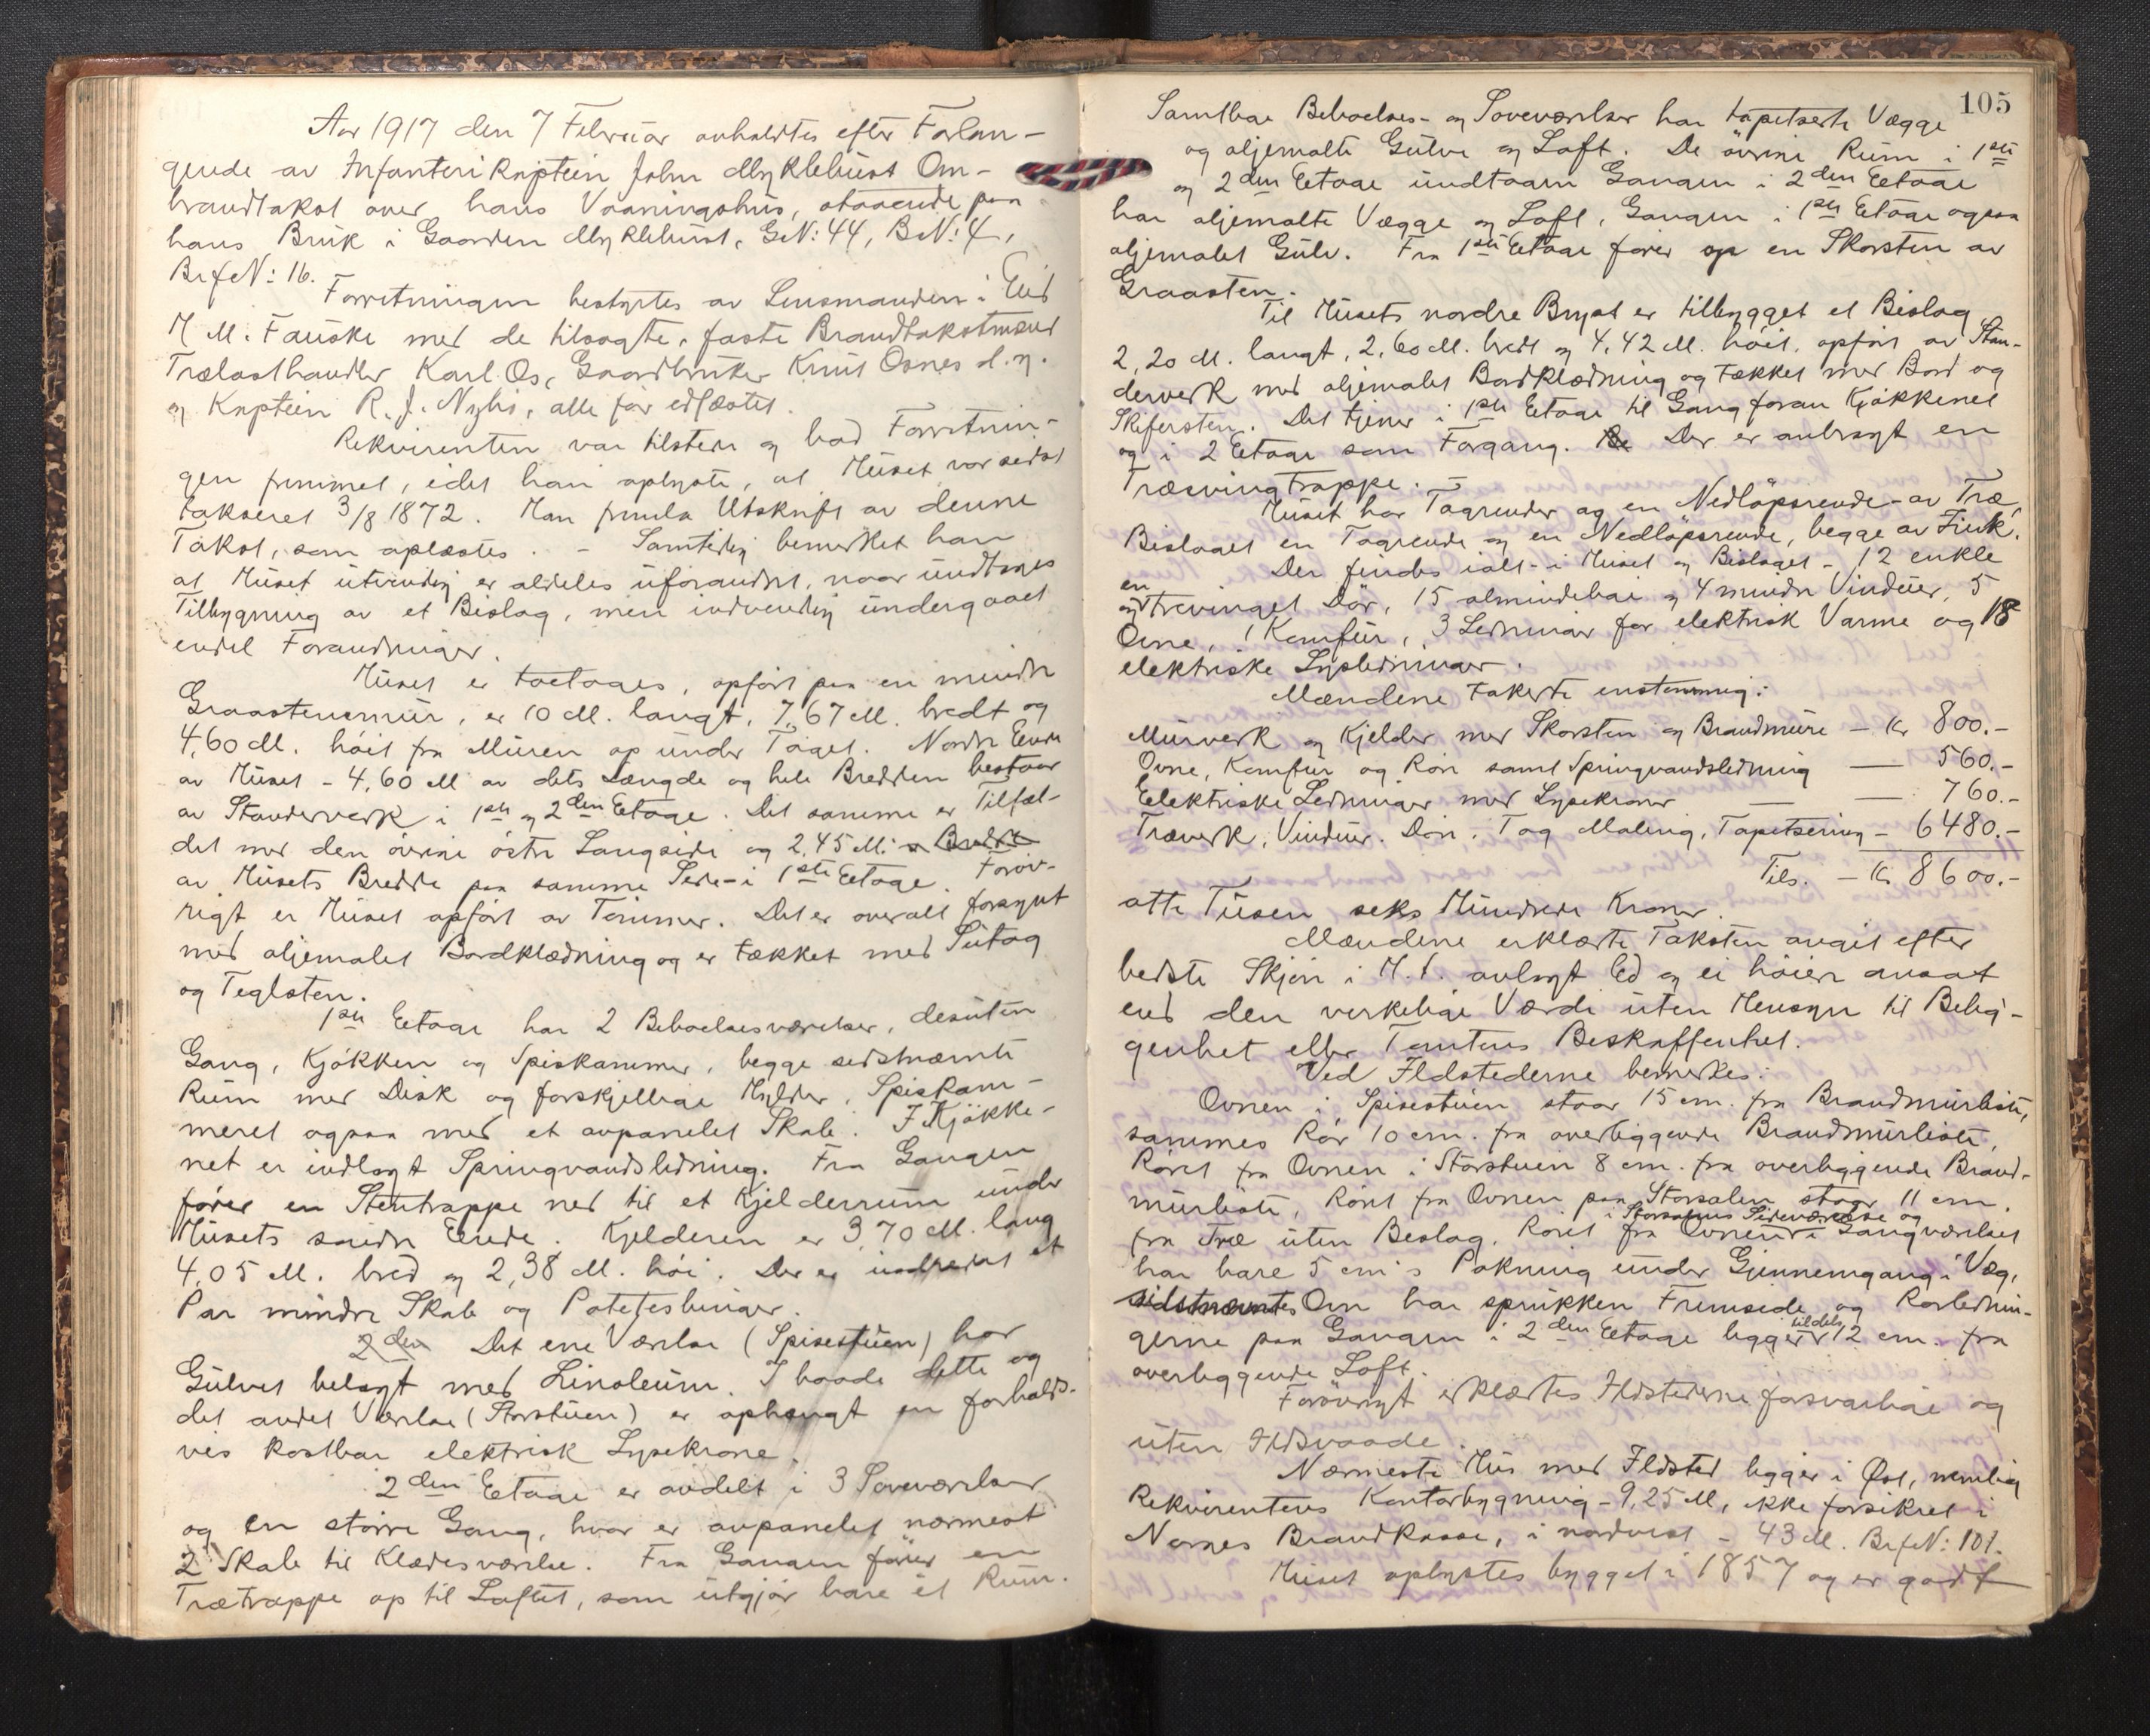 Aar 1917 den 7 Februar avholdtes efter Forlan-
gende av Infanterikaptein John Myklebust Om-
brandtakst over hans Vaaningshus, staaende paa
hans Bruk i Gaarden Myklebust, G.N: 44, B.N: 4,
Brf.N: 16.
Forretningen bestyrtes av Lensmanden i Eid
H. M. Fauske med de tilsagte, faste Brandtakstmænd
Trælasthandler Karl Os, Gaardbruker Knut Osnes d.y.
og Kaptein R. J. Nyhs, alle før edfæstet.
Rekvirenten var tilstede og bad Forretnin-
gen fremmet, idet han oplyste, at Huset var sidst
takseret 3/8 1872. Han fremla Utskrift av denne
Takst, som oplæstes. - Samtidig bemerket han
at Huset utvendig er aldeles uforandret, naar undtages
Tilbygning av et Bislag, men indvendig undergaaet
endel Forandringer.
Huset er toetages, opført paa en mindre
Graastensmur, er 10 M. langt, 7,67 M. bredt og
4,60 M. høit fra Muren op under Taget. Nordre Ende
av Huset - 4,60 M av dets Længde og hele Bredden bestaar
av Standerverk i 1ste og 2den Etage. Det samme er Tilfæl-
det med den øvrige østre Langside og 2,45 M. a Bredde
av Husets Bredde paa samme Side - i 1ste Etage. Forøv-
rigt er Huset opført av Tømmer. Det er overalt forsynt
med oljemalet Bordklædning og er tækket med Sutag
og Teglsten.
1ste Etage har 2 Beboelsesværelser, desuten
Gang, Kjøkken og Spiskammer, begge sidstnævnte
Rum med Disk og forskjellige Hylder, Spiskam-
meret ogsaa med et avpanelet Skab. I Kjøkke-
net er indlagt Springvandsledning. Fra Gangen
fører en Stentrappe ned til et Kjelderrum under
Husets søndre Ende. Kjelderen er 3,70 M. lang
4,05 M. bred og 2,38 M. høi. Der er indredet et
Par mindre Skab og Potetesbinger.
2den Det ene Værelse (Spisestuen) har
Gulvet belagt med Linoleum. I baade dette og
det andet Værelse (Storstuen) er ophængt en forholds-
vis kostbar elektrisk Lysekrone.
2den Etage er avdelt i 3 Soveværelser
og en større Gang, hvor er avpanelet nærmest
2 Skab til Klædesværelse. Fra Gangen fører en
Trætrappe op til Loftet, som utgjør bare et Rum.
105
Samtlige Beboelses- og Soveværelser har tapetserte Vægge
og oljemalte Gulve og Loft. De øvrige Rum i 1ste
og 2den Etage undtagen Gangen i 2den Etage
har oljemalte Vægge og Loft, Gangen i 1ste Etage ogsaa
oljemalet Gulv. Fra 1ste Etage fører op en Skorsten av
Graasten.
Til Husets nordre Bryst er tilbygget et Bislag
2,20 M. langt, 2,60 M. bredt og 4,42 M. høit, opført av Stan-
derverk med oljemalet Bordklædning og tækket med Bord og
Skifersten. Det tjener i 1ste Etage til Gang foran Kjøkkenet
og i 2 Etage som Forgang. Der er anbragt en
Træsvingtrappe. -
Huset har Tagrender og en Nedløpsrende - av Træ,
Bislaget en Tagrende og en Nedløpsrende, begge av Zink.
Der findes ialt - i Huset og Bislaget - 12 enkle
og en trevinget Dør, 15 almindelige og 4 mindre Vinduer, 5
Ovne, 1 Komfur, 3 Ledninger for elektrisk Varme og 18
elektriske Lysledninger.
Mændene takserte enstemmig:
Murverk og Kjelder med Skorsten og Brandmure - Kr 800.-
Ovne, Komfur og Rør samt Springvandsledning — 560.-
Elektriske Ledninger med Lysekroner — — 760.-
Træverk, Vinduer, Døre, Tag, Maling, Tapetsering - 6480.-
Tils. - Kr 8600.-
otte Tusen seks Hundrede Kroner.
Mændene erklærte Taksten avgit efter
bedste Skjøn i H.t. avlagt Ed og ei høiere ansat
end den virkelige Værdi uten Hensyn til Belig-
genhet eller Tomtens Beskaffenhet.
Ved Ildstederne bemerkes:
Ovnen i Spisestuen staar 15 cm. fra Brandmurliste,
sammes Rør 10 cm. fra overliggende Brandmurliste,
Røret fra Ovnen i Storstuen 8 cm. fra overliggende Brand-
murliste, Røret fra Ovnen paa Storsalen staar 11 cm.
fra Træ uten Beslag. Røret fra Ovnen i Storsalens Sideværelse og i Gangværelset
har bare 5 cm's Pakning under Gjennemgang i Væg,
sidstnævntes Ovn har sprukken Fremside og Rørlednin-
gerne paa Gangen i 2den Etage ligger tildels 12 cm. fra
overliggende Loft.
Forøvrigt erklærtes Ildstederne forsvarlige og
uten Ildsvaade.
Nærmeste Hus med Ildsted ligger i Øst, nemlig
Rekvirentens Kontorbygning - 9,25 M, ikke forsikret i
Norges Brandkasse, i nordvest - 43 M. Brf.N: 101.
Huset oplystes bygget i 1857 og er godt